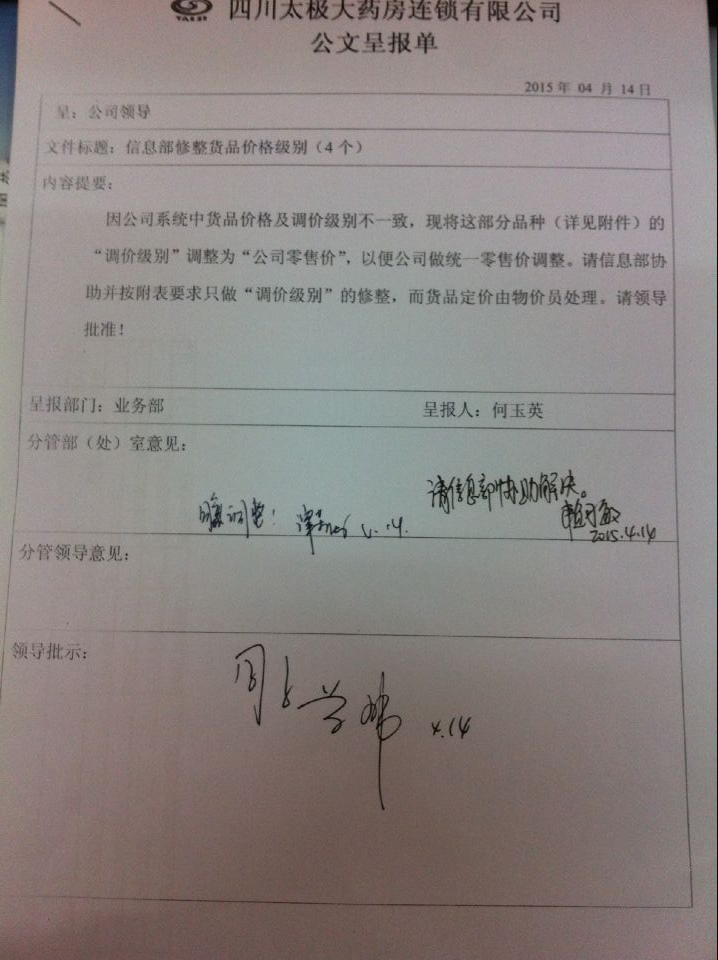 TAIJI
四川太极大药房连锁有限公司
公文呈报单
2015 年 04 月 14 日
呈：公司领导
文件标题：信息部修整货品价格级别（4 个）
内容提要：
因公司系统中货品价格及调价级别不一致，现将这部分品种（详见附件）的
“调价级别”调整为“公司零售价”，以便公司做统一零售价调整。请信息部协
助并按附表要求只做“调价级别”的修整，而货品定价由物价员处理。请领导
批准！
呈报部门：业务部
呈报人：何玉英
分管部（处）室意见：
请信息部协助解决。
2015.4.14
调整！ 4.14.
分管领导意见：
领导批示：
4.14